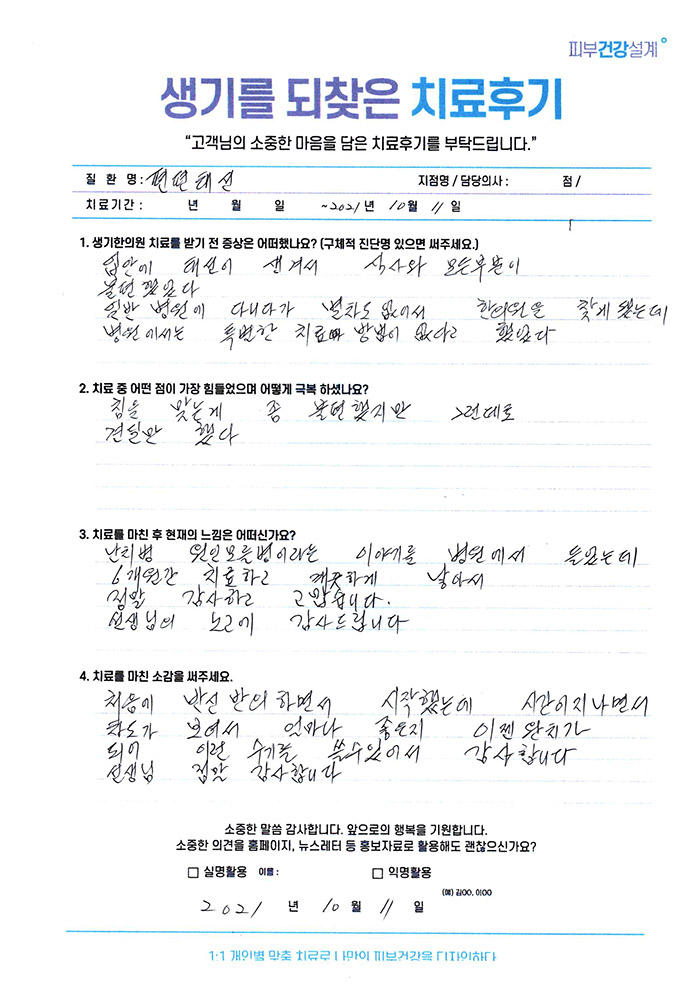 피부건강설계
생기를 되찾은 치료후기
“고객님의 소중한 마음을 담은 치료후기를 부탁드립니다.”
질 환 명 : 편평태선 지점명 / 담당의사 : 점 /
치료기간 : 년 월 일 ~2021년 10월 11일
1. 생기한의원 치료를 받기 전 증상은 어떠했나요? (구체적 진단명 있으면 써주세요.)
입안에 태선이 생겨서 식사와 모든부분이
불편했었다
일반 병원에 다니다가 별차도 없어서 한의원을 찾게 됐는데
병원에서는 특별한 치료 방법이 없다고 했었다
2. 치료 중 어떤 점이 가장 힘들었으며 어떻게 극복 하셨나요?
침을 맞는게 좀 불편했지만 그런데로
견딜만 했다
3. 치료를 마친 후 현재의 느낌은 어떠신가요?
난치병 원인모를병이라는 이야기를 병원에서 들었는데
6개월간 치료하고 깨끗하게 낳아서
정말 감사하고 고맙습니다.
선생님의 노고에 감사드립니다
4. 치료를 마친 소감을 써주세요.
처음에 반신 반의 하면서 시작했는데 시간이지나면서
차도가 보여서 얼마나 좋은지 이젠 완치가
되어 이런 수기를 쓸수있어서 감사합니다
선생님 정말 감사합니다
소중한 말씀 감사합니다. 앞으로의 행복을 기원합니다.
소중한 의견을 홈페이지, 뉴스레터 등 홍보자료로 활용해도 괜찮으신가요?
실명활용 이름 : 익명활용
(예) 김OO, 이OO
2021 년 10 월 11 일
1:1 개인별 맞춤 치료로 나만의 피부건강을 디자인하다